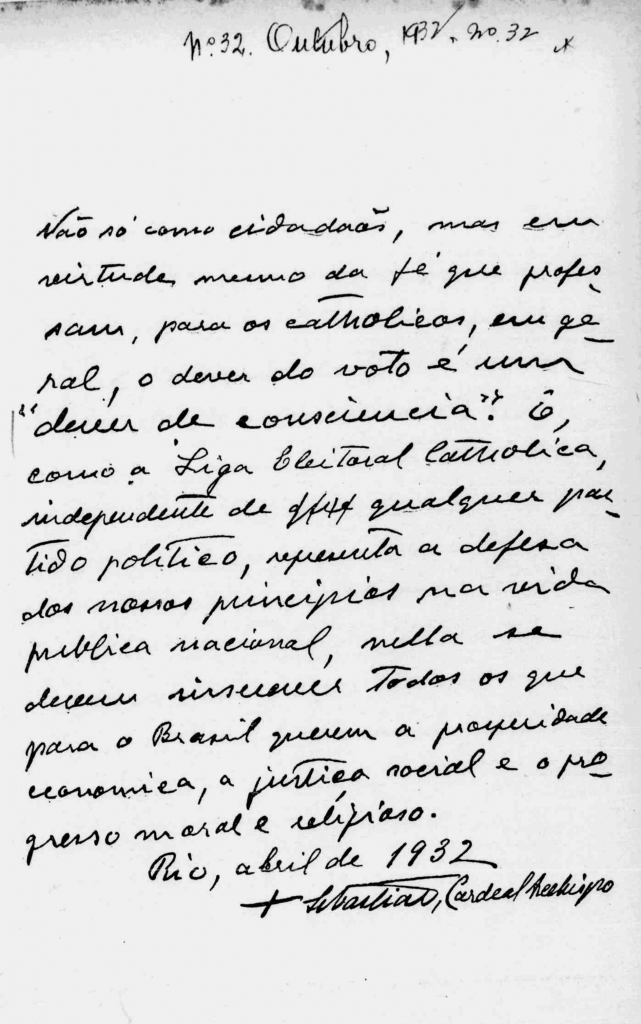 Nº 32. Outubro, 1932. no. 32
Não só como cidadãos, mas em
virtude mesmo da fé que profes
sam, para os catholicos, em ge-
ral, o dever do voto é um
"dever de consciencia". E,
como a Liga Eleitoral Catholica,
independente de qualquer par-
tido politico, representa a defesa
dos nossos principios na vida
publica nacional, nella se
devem inscrever todos os que
para o Brasil querem a prosperidade
economica, a justiça social e o pro-
gresso moral e religioso.
Rio, abril de 1932
+ Sebastião, Cardeal Arcebispo